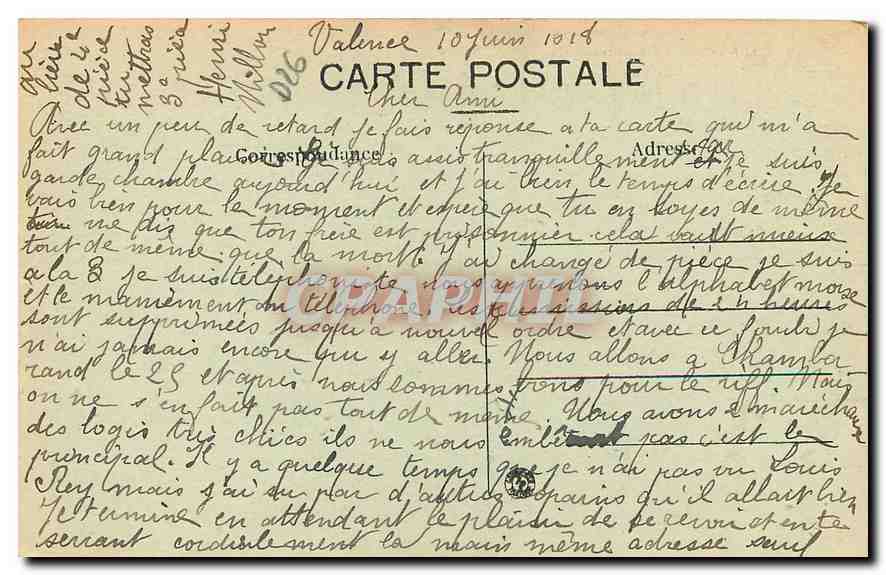 Valence 10 Juin 1918
CARTE POSTALE
Cher Ami
Avec un peu de retard je fais réponse a ta carte qui m'a
fait grand plaisir Je vais assez tranquillement et je suis
Correspondance
Adresse
garde chambre aujourd'hui et j'ai bien le temps d'écrire. Je
vais bien pour le moment et espère que tu en soyes de même
tu me dis que ton frere est prisonnier cela vaut mieux
tout de même que la mort. J'ai changé de pièce je suis
a la 3 je suis téléphoniste nous apprenons l'alphabet morse
et le maniement du téléphone. les permissions de 24 heures
sont supprimées jusqu'a nouvel ordre et avec ce fourbi je
n'ai jamais encore qui y aller. Nous allons a Chamba
rand le 25 et après nous sommes bons pour le riff. Mais
on ne s'en fait pas tout de même. Nous avons 2 maréchaux
des logis très chics ils ne nous embêtent pas c'est le
principal. Il y a quelque temps que je n'ai pas vu Louis
Rey mais j'ai su par d'autres copains qu'il allait bien
Je termine en attendant le plaisir de se revoir et en te
serrant cordialement la main même adresse sauf
qu
lière
de 4e
pièce
tu
mettras
3e pièce
Henri
Millon
D26
CRAPHIL